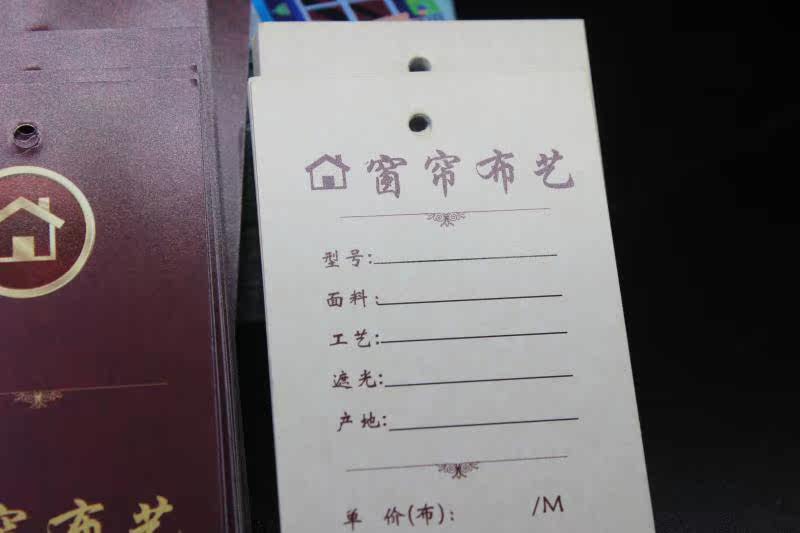 窗帘布艺
型号:
面料:
工艺:
遮光:
产地:
单 价(布): /M
帘布艺